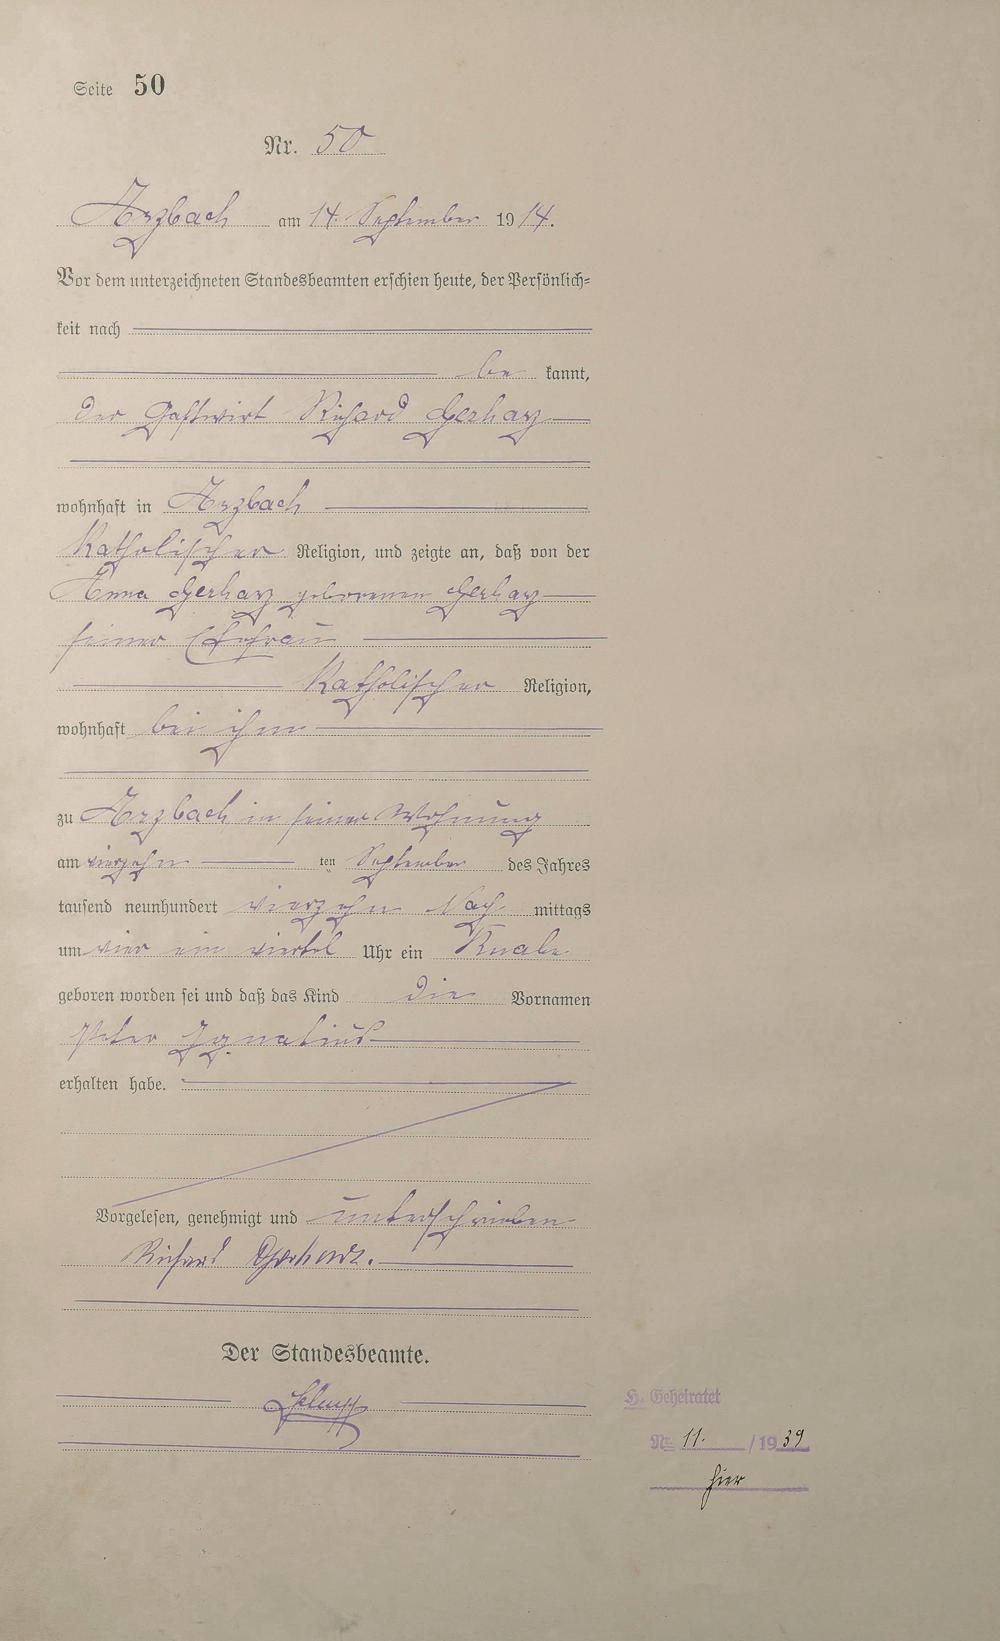 Seite 50
Nr. 50
Arzbach am 14. September 1914.
Vor dem unterzeichneten Standesbeamten erschien heute, der Persönlich=
keit nach
be kannt,
der Gastwirt Richard Gerharz
wohnhaft in Arzbach
Katholischer Religion, und zeigte an, daß von der
Anna Gerharz geborenen Gerharz
seiner Ehefrau
Katholischer Religion,
wohnhaft bei ihm
zu Arzbach in seiner Wohnung
am vierzehn ten September des Jahres
tausend neunhundert vierzehn Nach mittags
um vier ein viertel Uhr ein Knabe
geboren worden sei und daß das Kind die Vornamen
Peter Ignatius
erhalten habe.
Vorgelesen, genehmigt und unterschrieben
Richard Gerharz.
Der Standesbeamte.
H. Geheiratet
Nr. 11. /1939
hier